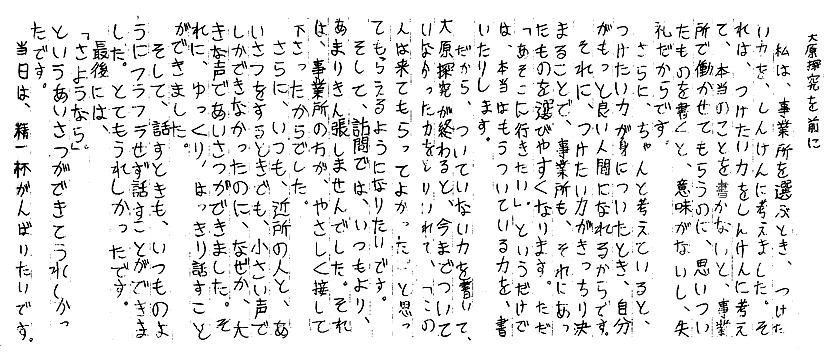 大原探究を前に
私は、事業所を選ぶとき、つけた
い力を、しんけんに考えました。そ
れは、つけたい力をしんけんに考え
て、本当のことを書かないと、事業
所で働かせてもらうのに、思いつい
たものを書くと、意味がないし、失
礼だからです。
さらに、ちゃんと考えていると、
つけたい力が身についたとき、自分
がもっと良い人間になれるからです。
それに、つけたい力がきっちり決
まることで、事業所も、それにあっ
たものを選びやすくなります。ただ
「あそこに行きたい。」というだけで
は、本当はもうついている力を、書
いたりします。
だから、ついていない力を書いて、
大原探究が終わると、今までついて
いなかった力をとりいれて、「この
人は来てもらってよかった。」と思っ
てもらえるようになりたいです。
そして、訪問では、いつもより、
あまりきん張しませんでした。それ
は、事業所の方が、やさしく接して
下さったからでした。
さらに、いつも、近所の人と、あ
いさつをするときでも、小さい声で
しかできなかったのに、なぜか、大
きな声であいさつができました。そ
れに、ゆっくり、はっきり話すこと
ができました。
そして、話すときも、いつものよ
うにフラフラせず話すことができま
した。とてもうれしかったです。
最後には、
「さようなら。」
というあいさつができてうれしかっ
たです。
当日は、精一杯がんばりたいです。